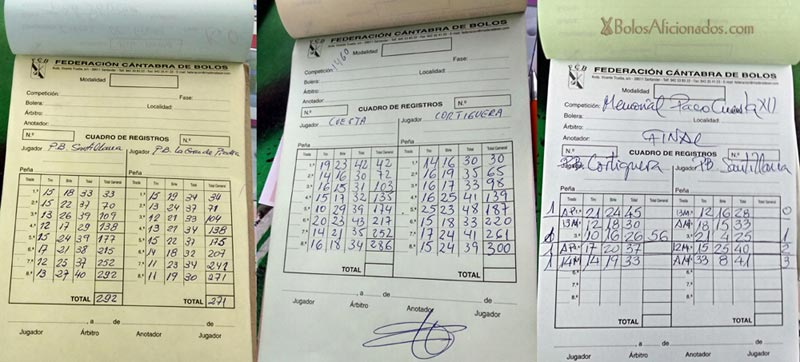 FEDERACIÓN CÁNTABRA DE BOLOS
Modalidad
Competición: Fase:
Bolera: Localidad:
Árbitro:
Anotador:
N.º CUADRO DE REGISTROS N.º
Jugador P.B. Santillana Jugador P.B. La
Peña Peña
Tirada Tiro Birle Total Total General Tirada Tiro Birle Total Total General
1.ª 15 18 33 33 1.ª 15 19 34 34
2.ª 15 22 37 70 2.ª 13 24 37 71
3.ª 13 26 39 109 3.ª 12 21 33 104
4.ª 12 17 29 138 4.ª 13 21 34 138
5.ª 15 24 39 177 5.ª 15 22 37 175
6.ª 17 21 38 215 6.ª 14 18 32 207
7.ª 12 25 37 252 7.ª 11 23 34 241
8.ª 13 27 40 292 8.ª 11 19 30 271
TOTAL 292 TOTAL 271
, a de de
Jugador Árbitro Anotador Jugador
FEDERACIÓN CÁNTABRA DE BOLOS
Modalidad
Competición: 1460 Fase:
Bolera: Localidad:
Árbitro:
Anotador:
N.º CUADRO DE REGISTROS N.º
Jugador CUESTA Jugador CORTIGUERA
Peña Peña
Tirada Tiro Birle Total Total General Tirada Tiro Birle Total Total General
1.ª 19 23 42 42 1.ª 14 16 30 30
2.ª 14 16 30 72 2.ª 16 19 35 65
3.ª 16 15 31 103 3.ª 16 17 33 98
4.ª 15 17 32 135 4.ª 16 25 41 139
5.ª 10 29 39 174 5.ª 25 23 48 187
6.ª 20 23 43 217 6.ª 15 18 33 220
7.ª 14 21 35 252 7.ª 17 24 41 261
8.ª 16 18 34 286 8.ª 15 24 39 300
TOTAL TOTAL
, a de de
Jugador Árbitro Anotador Jugador
BolosAficionados.com
FEDERACIÓN CÁNTABRA DE BOLOS
Modalidad
Competición: Memorial Paco Cuesta XII
Bolera: Localidad:
Árbitro:
Anotador: FINAL
N.º CUADRO DE REGISTROS N.º
Jugador P.B. Cortiguera Jugador P.B. Santillana
Peña Peña
Tirada Tiro Birle Total Total General Tirada Tiro Birle Total Total General
1 21 24 45 13M 12 16 28 0
13M 12 18 30 18 15 33
10 16 26 56 21 4 25
1 17 20 37 12M 15 25 40
1 14M 14 19 33 33 8 41
TOTAL TOTAL
, a de de
Jugador Árbitro Anotador Jugador